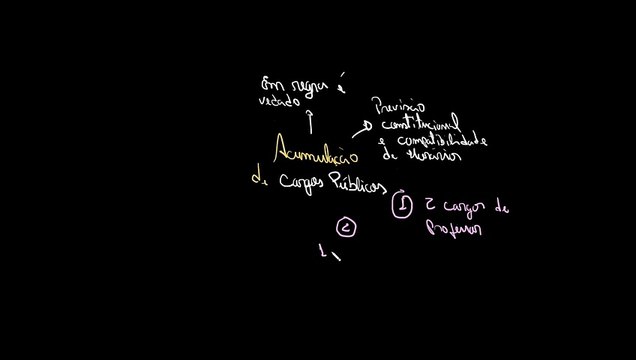 Em regra é
vedado
Previsão
constitucional
e compatibilidade
de Horários
Acumulação
de Cargos Públicos
1 2 cargos de
Professor
2
1